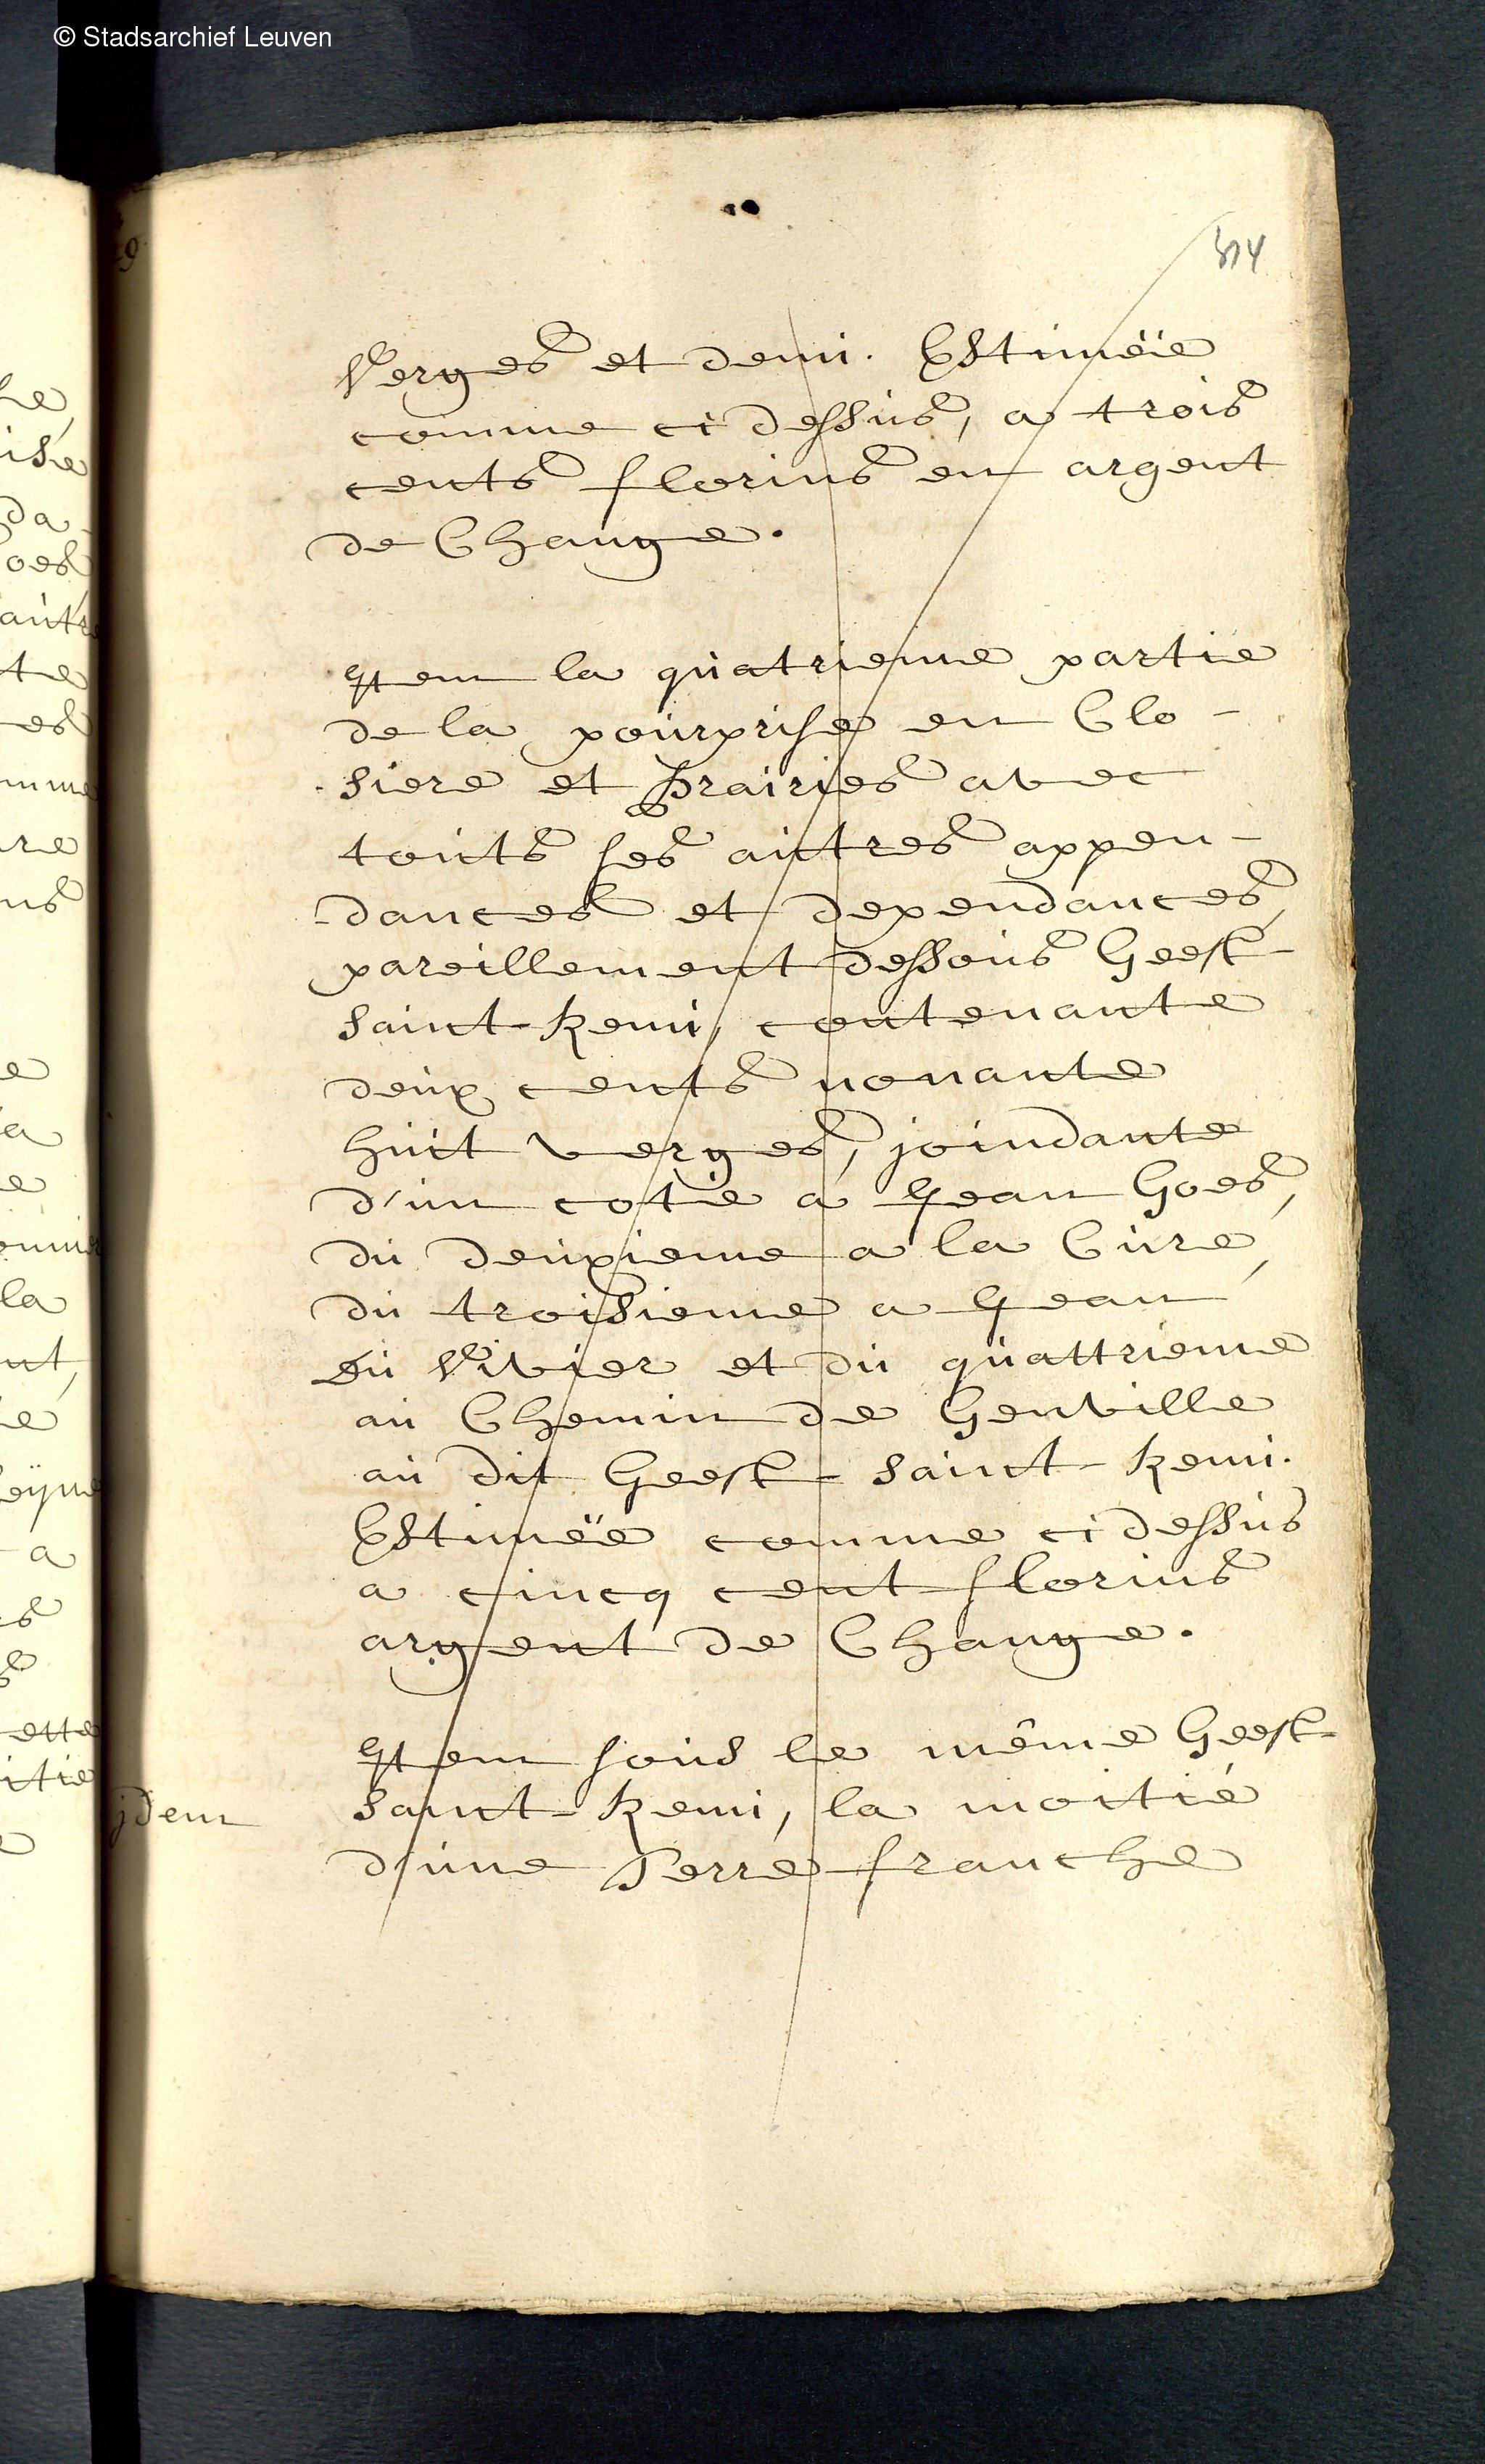 © Stadsarchief Leuven
Verges et demi. Estimëe
comme ci dessus, a trois
cents florins en argent
de Change.
Item la quatrieme partie
de la pourprise en Clo-
siere et prairies avec
touts ses autres appen-
dances et dependances,
pareillement dessous Geest-
saint-Remi, contenante
deux cents nonante
huit verges, joindante
d'un cotie a Jean Goes,
du deuxieme a la Cure,
du troisieme a Jean
du Vivier et du quattrieme
au Chemin de Genville
au dit Geest-saint-Remi.
Estimëe comme ci dessus
a cincq cent florins
argent de Change.
Item sous le même Geest-
jdem saint-Remi, la moitié
d'une Terre franche